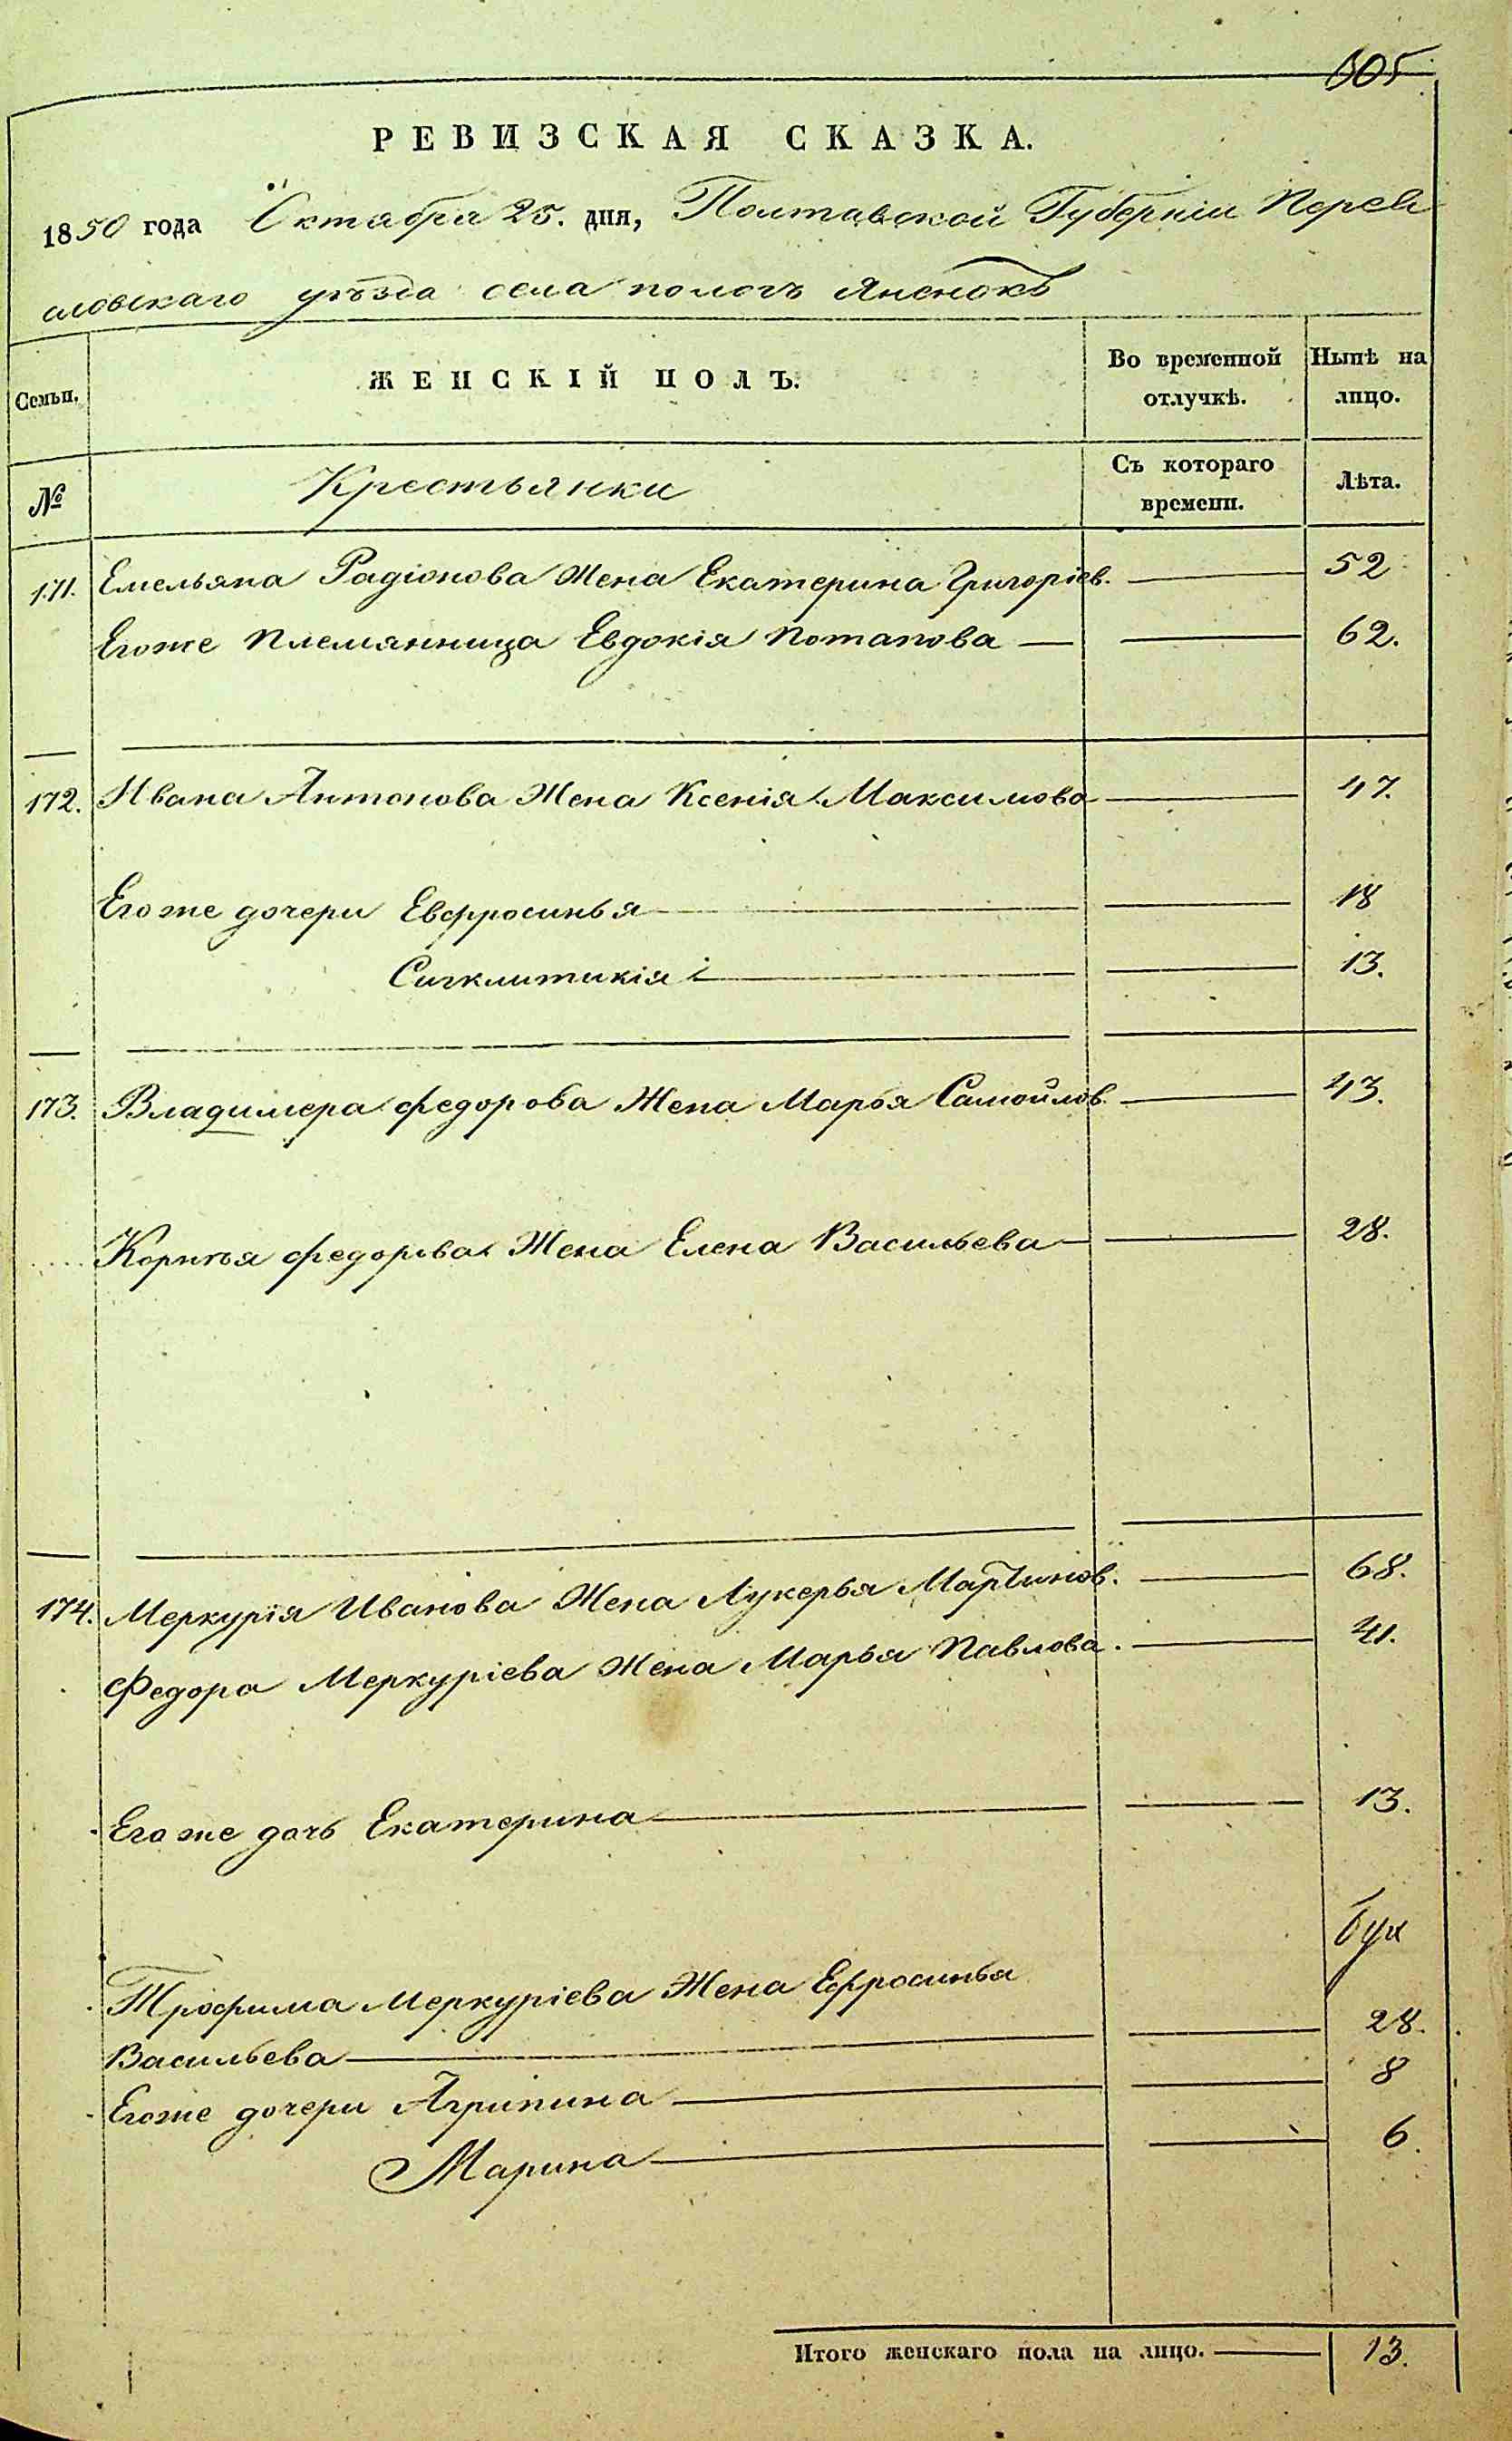 605
РЕВИЗСКАЯ СКАЗКА.
1850 года Октября 25. дня, Полтавской Губерніи Перея
словскаго уѣзда села пологъ Яненокъ
Семьи. ЖЕНСКІЙ ПОЛЪ. Во временной отлучкѣ. Нынѣ на лицо.
№ Крестьянки Съ котораго времени. Лѣта.
171. Емельяна Радіонова Жена Екатерина Григоріев. 52
Егоже племянница Евдокія Потапова 62.
172. Ивана Антонова Жена Ксенія Максимова 47.
Егоже дочери Евфросинья 18
Сигклитикія 13.
173. Владимера Федорова Жена Марья Самойлов. 43.
Корнѣя Федорова Жена Елена Васильева 28.
174. Меркурія Иванова Жена Лукерья Мартинов. 68.
Федора Меркуріева Жена Марья Павлова. 41.
Егоже дочь Екатерина 13.
Трофима Меркуріева Жена Ефросинья
Васильева 28.
Егоже дочери Агрипина 8
Марина 6.
Итого женскаго пола на лицо. 13.